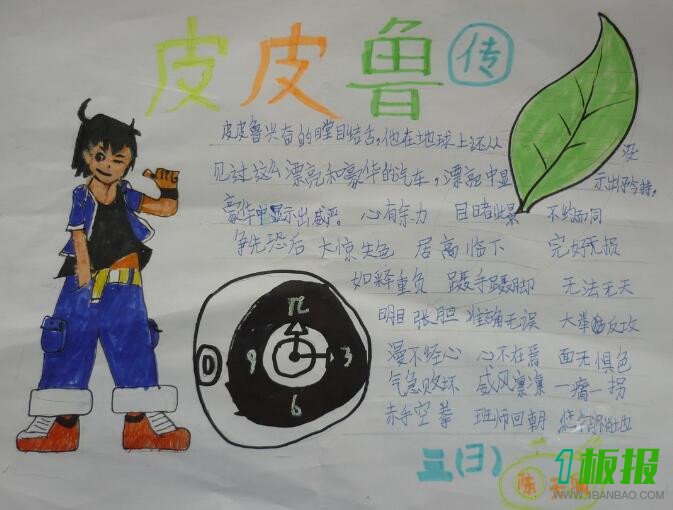 皮皮鲁传
皮皮鲁兴奋的瞠目结舌,他在地球上还从没
见过这么漂亮和豪华的汽车,漂亮中显示出矜持,
豪华中显示出威严。 心有余力 目睹 不约而同
争先恐后 大惊失色 居高临下 完好无损
如释重负 蹑手蹑脚 无法无天
明目张胆 准确无误 大举 反攻
漫不经心 心不在焉 面无惧色
气急败坏 威风凛凛 一瘸一拐
赤手空拳 班师回朝
12
9 3
6
D
三(3)
陈
1板报
WWW.1BANBAO.COM